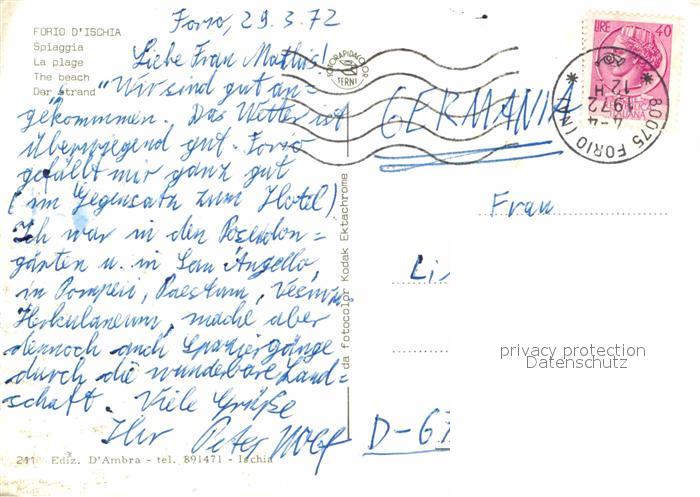 FORIO D'ISCHIA
Spiaggia
La plage
The beach
Der Strand
Forio, 29.3.72
Liebe Frau Mathis!
Wir sind gut an=
gekommen. Das Wetter ist
überwiegend gut. Forio
gefällt mir ganz gut
(im Gegensatz zum Hotel)
Ich war in den Poseidon=
gärten u. in San Angello,
in Pompeii, Paestum, Vesuv,
Herkulaneum, mache aber
dennoch auch Spaziergänge
durch die wunderbare Land=
schaft. Viele Grüße
Ihr Peter Wolf
241 Ediz. D'Ambra - tel. 891471 - Ischia
da fotocolor Kodak Ektachrome
FOTORAPIDACOLOR
TERNI
LIRE 40
ITALIANA
80075 FORIO (NA)
4-4
1972
12 H
GERMANIA
Frau
Li
D-67
privacy protection
Datenschutz